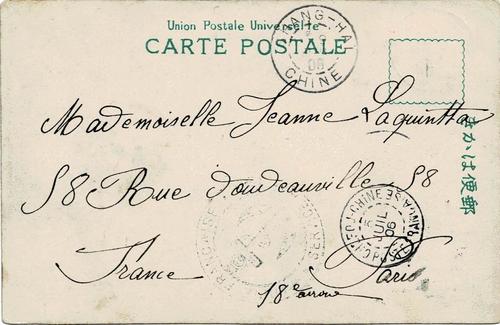 Union Postale Universelle
CARTE POSTALE
CHANG-HAI
CHINE
Mademoiselle Jeanne Laquintta
58 Rue doudeauville 58
France
Paris
18e arrone
きかは便郵
JUIL
06